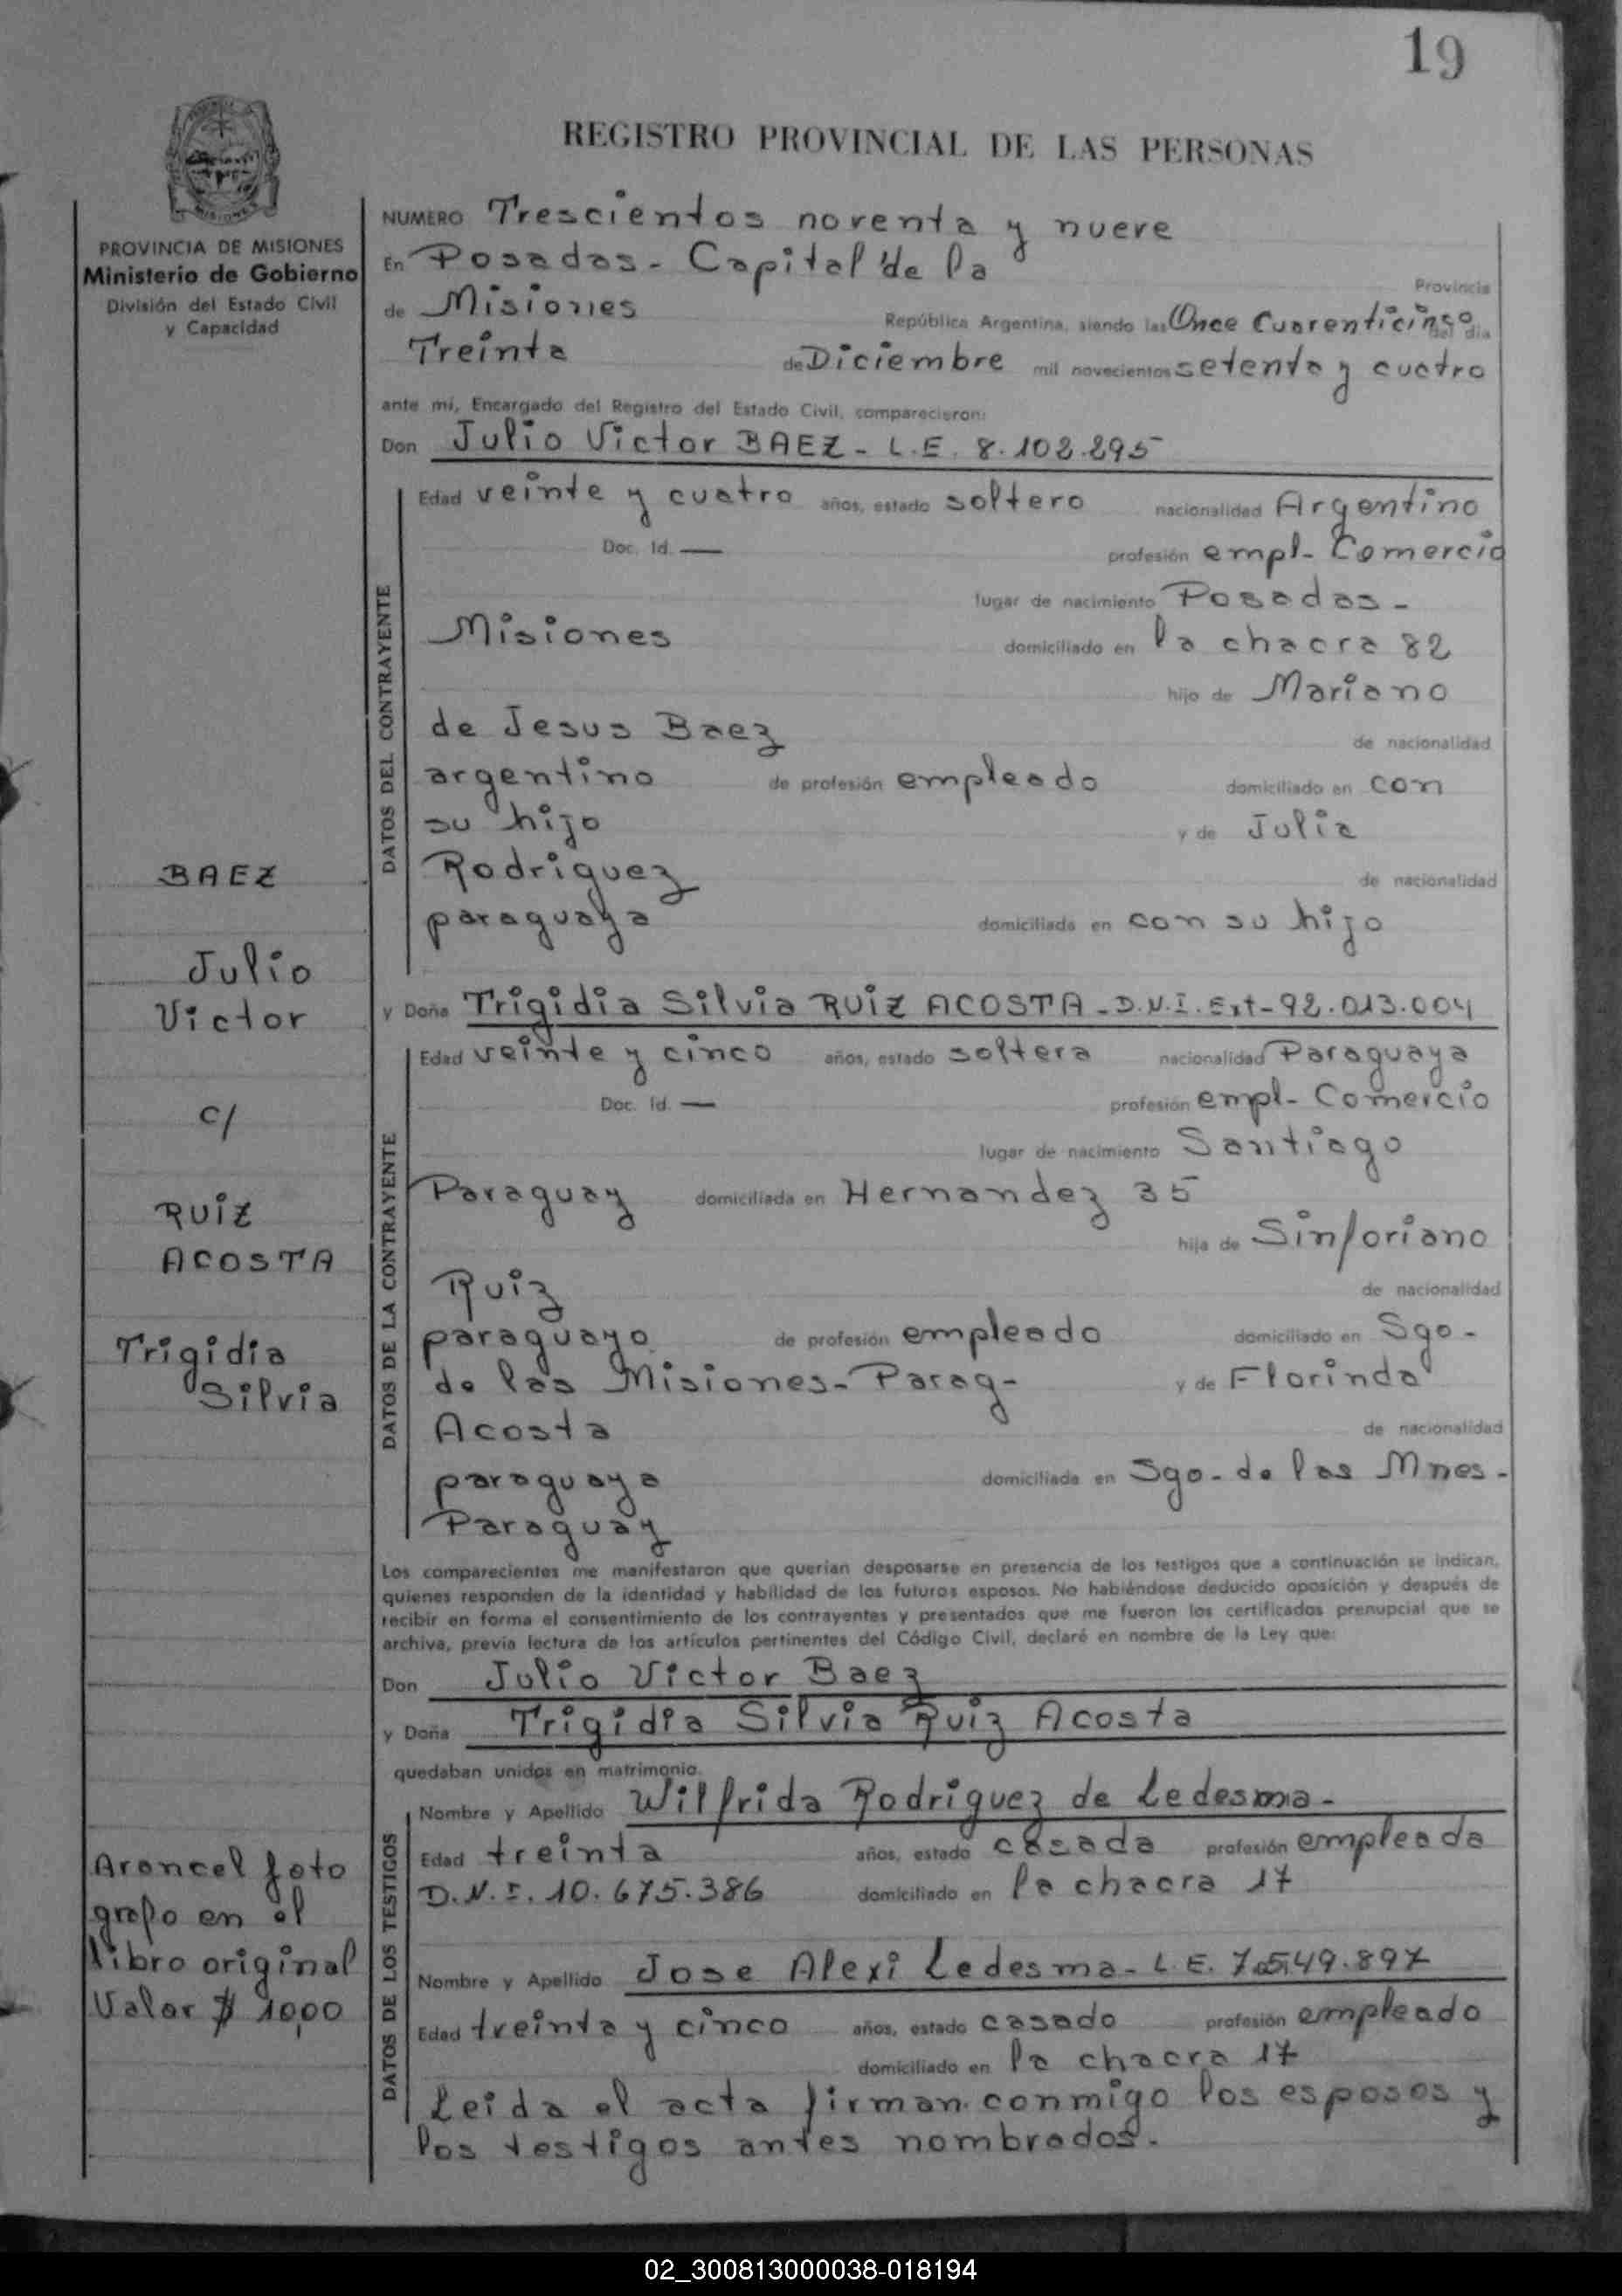 19
REGISTRO PROVINCIAL DE LAS PERSONAS
PROVINCIA DE MISIONES
Ministerio de Gobierno
División del Estado Civil
y Capacidad
NUMERO Trescientos noventa y nueve
En Posadas - Capital de la
Provincia
de Misiones República Argentina, siendo las Once Cuarenticinco del día
Treinta de Diciembre mil novecientos setenta y cuatro
ante mí, Encargado del Registro del Estado Civil, comparecieron:
Don Julio Victor BAEZ - L.E. 8.102.295
DATOS DEL CONTRAYENTE
Edad veinte y cuatro años, estado soltero nacionalidad Argentino
Doc. Id. — profesión empl- Comercio
lugar de nacimiento Posadas -
Misiones domiciliado en la chacra 82
hijo de Mariano
de Jesus Baez de nacionalidad
argentino de profesión empleado domiciliado en con
su hijo y de Julia
Rodriguez de nacionalidad
paraguaya domiciliada en con su hijo
BAEZ
Julio
Victor
c/
RUIZ
ACOSTA
Trigidia
Silvia
y Doña Trigidia Silvia RUIZ ACOSTA - D.N.I. Ext- 92.013.004
DATOS DE LA CONTRAYENTE
Edad veinte y cinco años, estado soltera nacionalidad Paraguaya
Doc. Id. — profesión empl- Comercio
lugar de nacimiento Santiago
Paraguay domiciliada en Hernandez 35
hija de Sinforiano
Ruiz de nacionalidad
paraguayo de profesión empleado domiciliado en Sgo-
de las Misiones- Parag- y de Florinda
Acosta de nacionalidad
paraguaya domiciliada en Sgo- de las Mnes-
Paraguay
Los comparecientes me manifestaron que querían desposarse en presencia de los testigos que a continuación se indican,
quienes responden de la identidad y habilidad de los futuros esposos. No habiéndose deducido oposición y después de
recibir en forma el consentimiento de los contrayentes y presentados que me fueron los certificados prenupcial que se
archiva, previa lectura de los artículos pertinentes del Código Civil, declaré en nombre de la Ley que:
Don Julio Victor Baez
y Doña Trigidia Silvia Ruiz Acosta
quedaban unidos en matrimonio.
DATOS DE LOS TESTIGOS
Nombre y Apellido Wilfrida Rodriguez de Ledesma -
Edad treinta años, estado casada profesión empleada
D.N.I. 10.675.386 domiciliado en la chacra 17
Nombre y Apellido Jose Alexi Ledesma - L.E. 7.549.897
Edad treinta y cinco años, estado casado profesión empleado
domiciliado en la chacra 17
Leida el acta firman conmigo los esposos y
los testigos antes nombrados.
Arancel foto
grafo en el
libro original
Valor $ 10,00
02_300813000038-018194